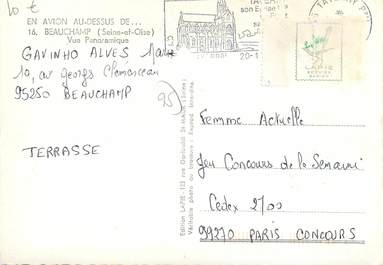 10 €
EN AVION AU-DESSUS DE...
16. BEAUCHAMP (Seine-et-Oise)
Vue Panoramique
GAVINHO ALVES
10, av Georges Clemenceau
95250 BEAUCHAMP
95
TERRASSE
Edition LAPIE - 123 rue Garibaldi St MAUR (Seine)
Véritable photo au bromure -
TAVERNY
son Eglise
20-1
TAVERNY
LAPIE
Femme Actuelle
Jeu Concours de la Semaine
Cedex 2700
99270 PARIS CONCOURS